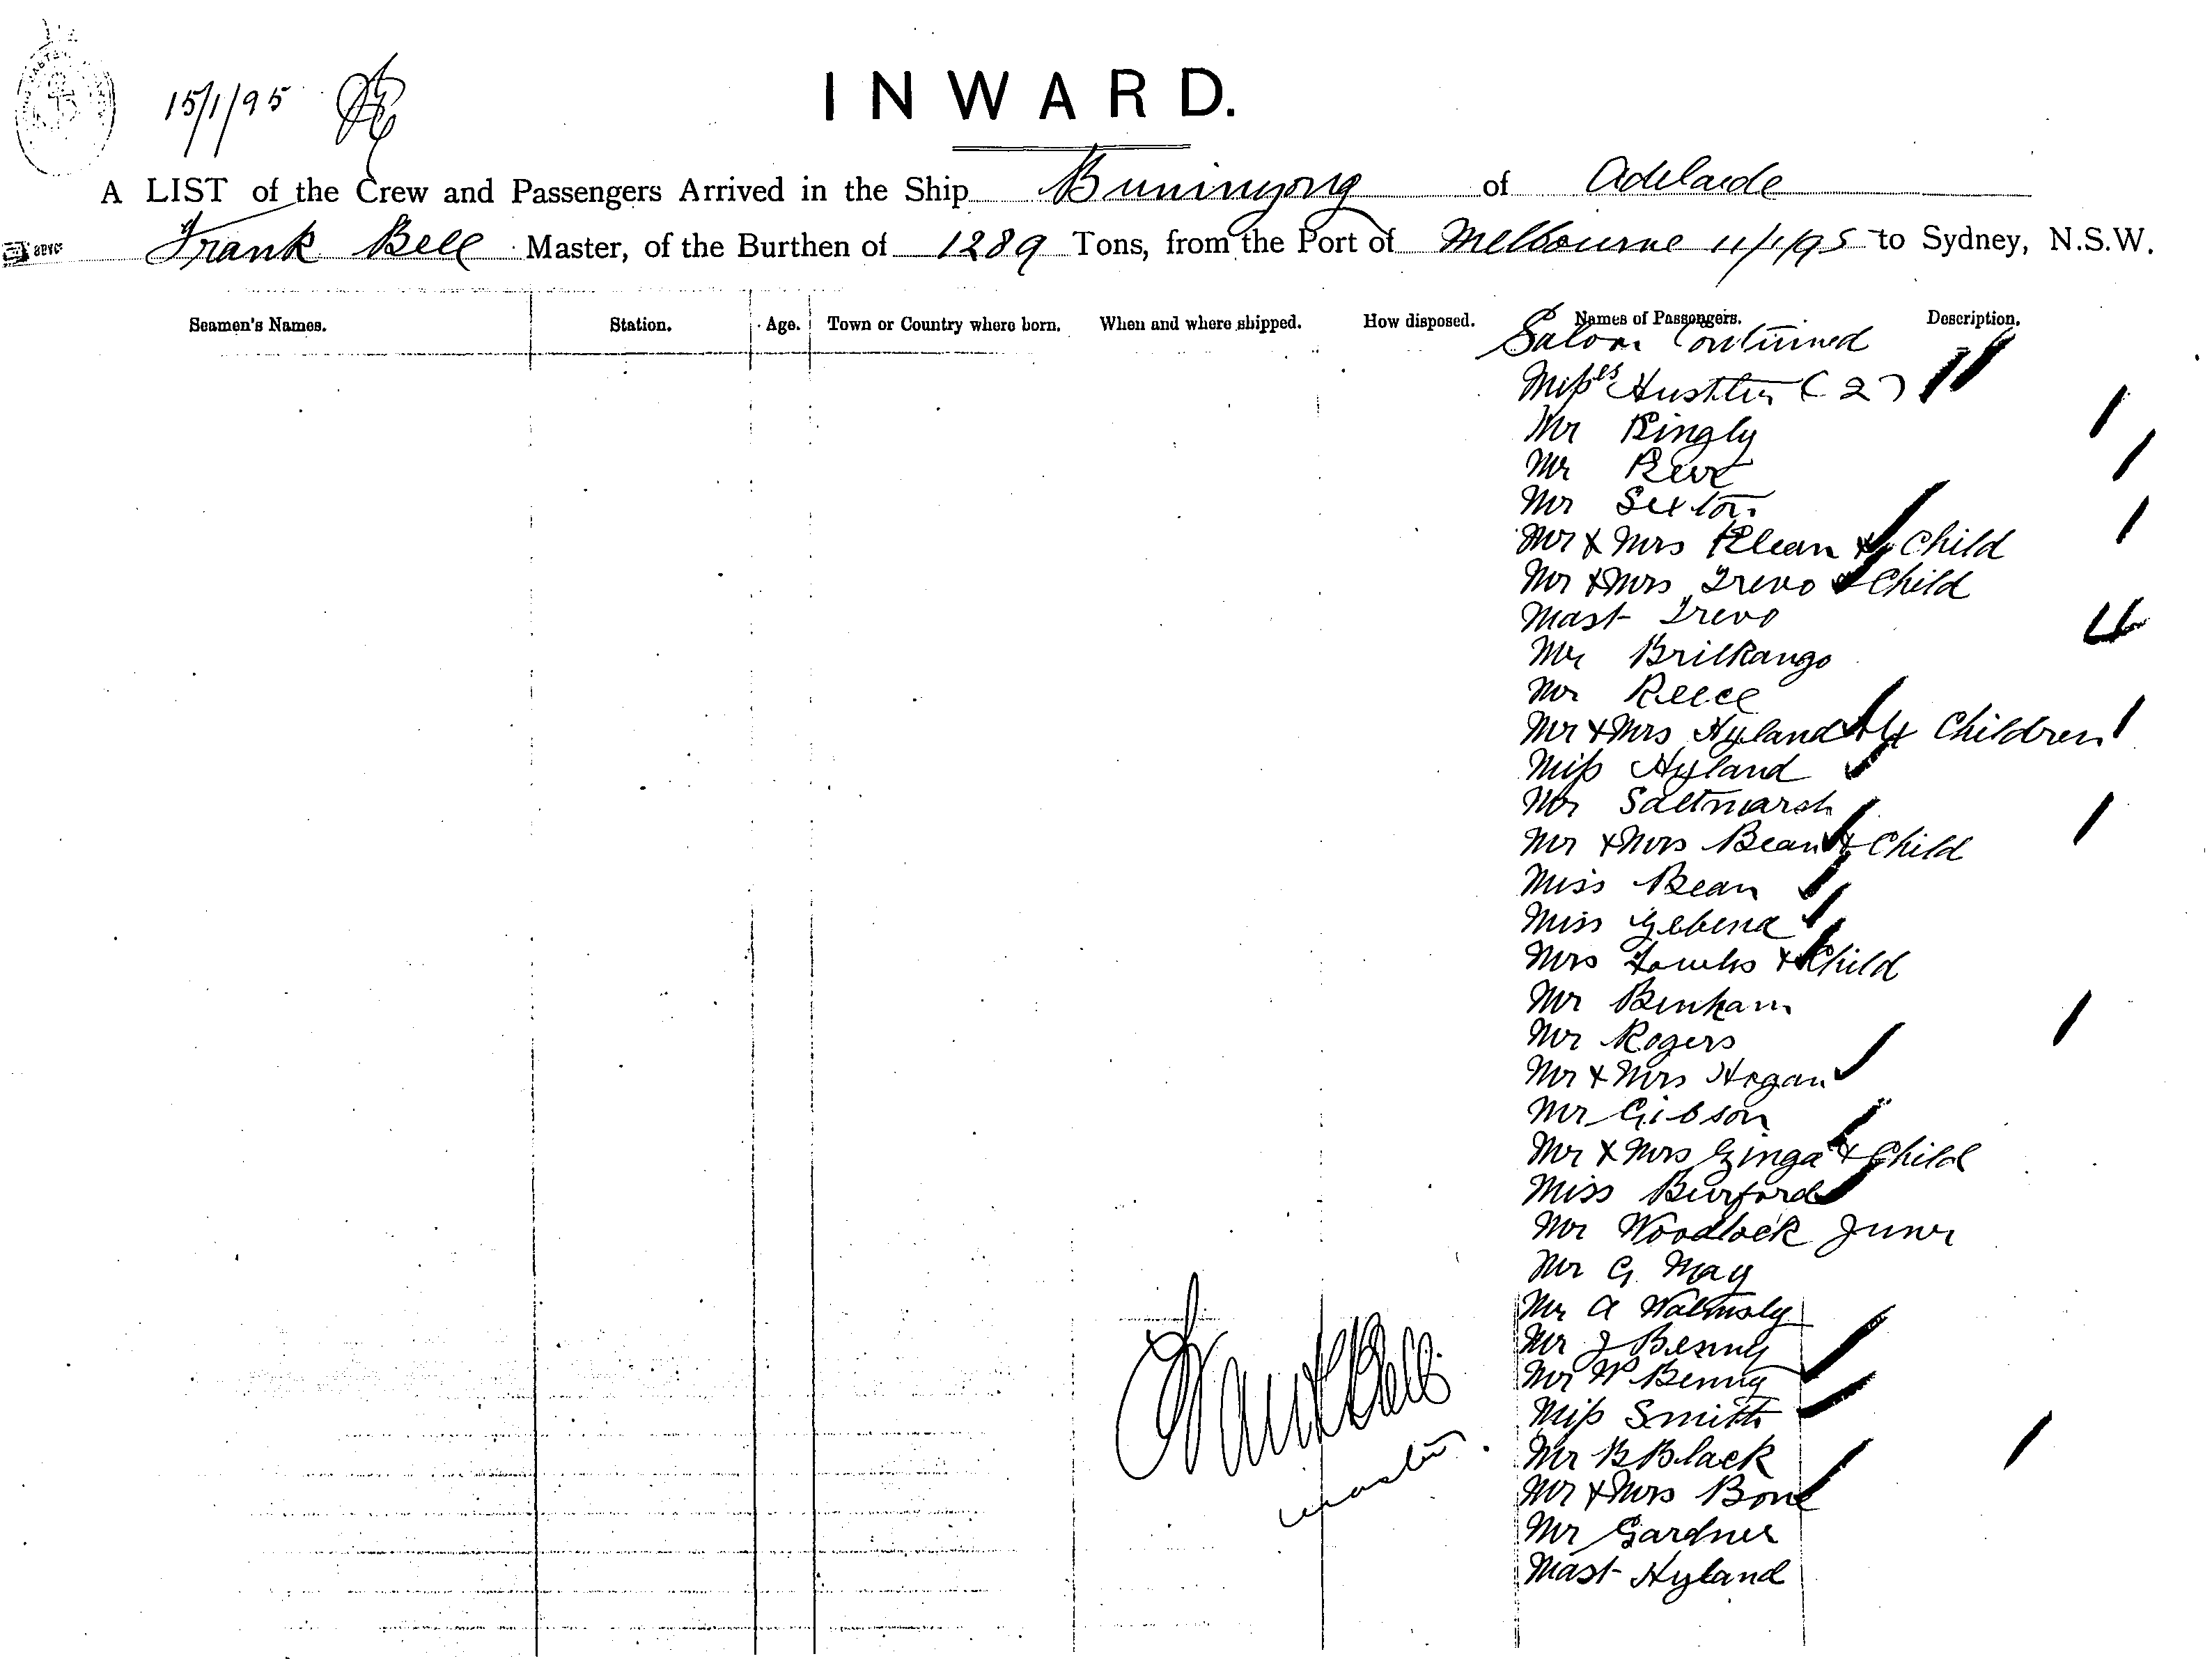 15/1/95
INWARD.
A LIST of the Crew and Passengers Arrived in the Ship Buninyong of Adelaide
Frank Bell Master, of the Burthen of 1289 Tons, from the Port of Melbourne 11/1/95 to Sydney, N.S.W.
Seamen's Names. Station. Age. Town or Country where born. When and where shipped. How disposed. Names of Passengers. Description.
Saloon Continued
Misses Hustler (2)
Mr Bingly
Mr
Mr Sexton
Mr & Mrs Klean & Child
Mr & Mrs Trevo & Child
Mast Trevo
Mr Brilkango
Mr Reece
Mr & Mrs Hyland & 4 Children
Miss Hyland
Mr Saltmarsh
Mr & Mrs Bean & Child
Miss Bean
Miss
Mrs & Child
Mr Benham
Mr Rogers
Mr & Mrs Hogan
Mr Gibson
Mr & Mrs Ginga & Child
Miss Burford
Mr Woodlock Junr
Mr G May
Mr A Walmsly
Mr J Benny
Mr W Benny
Miss Smith
Mr B Black
Mr & Mrs Bone
Mr Gardner
Mast Hyland
Frank Bell
master